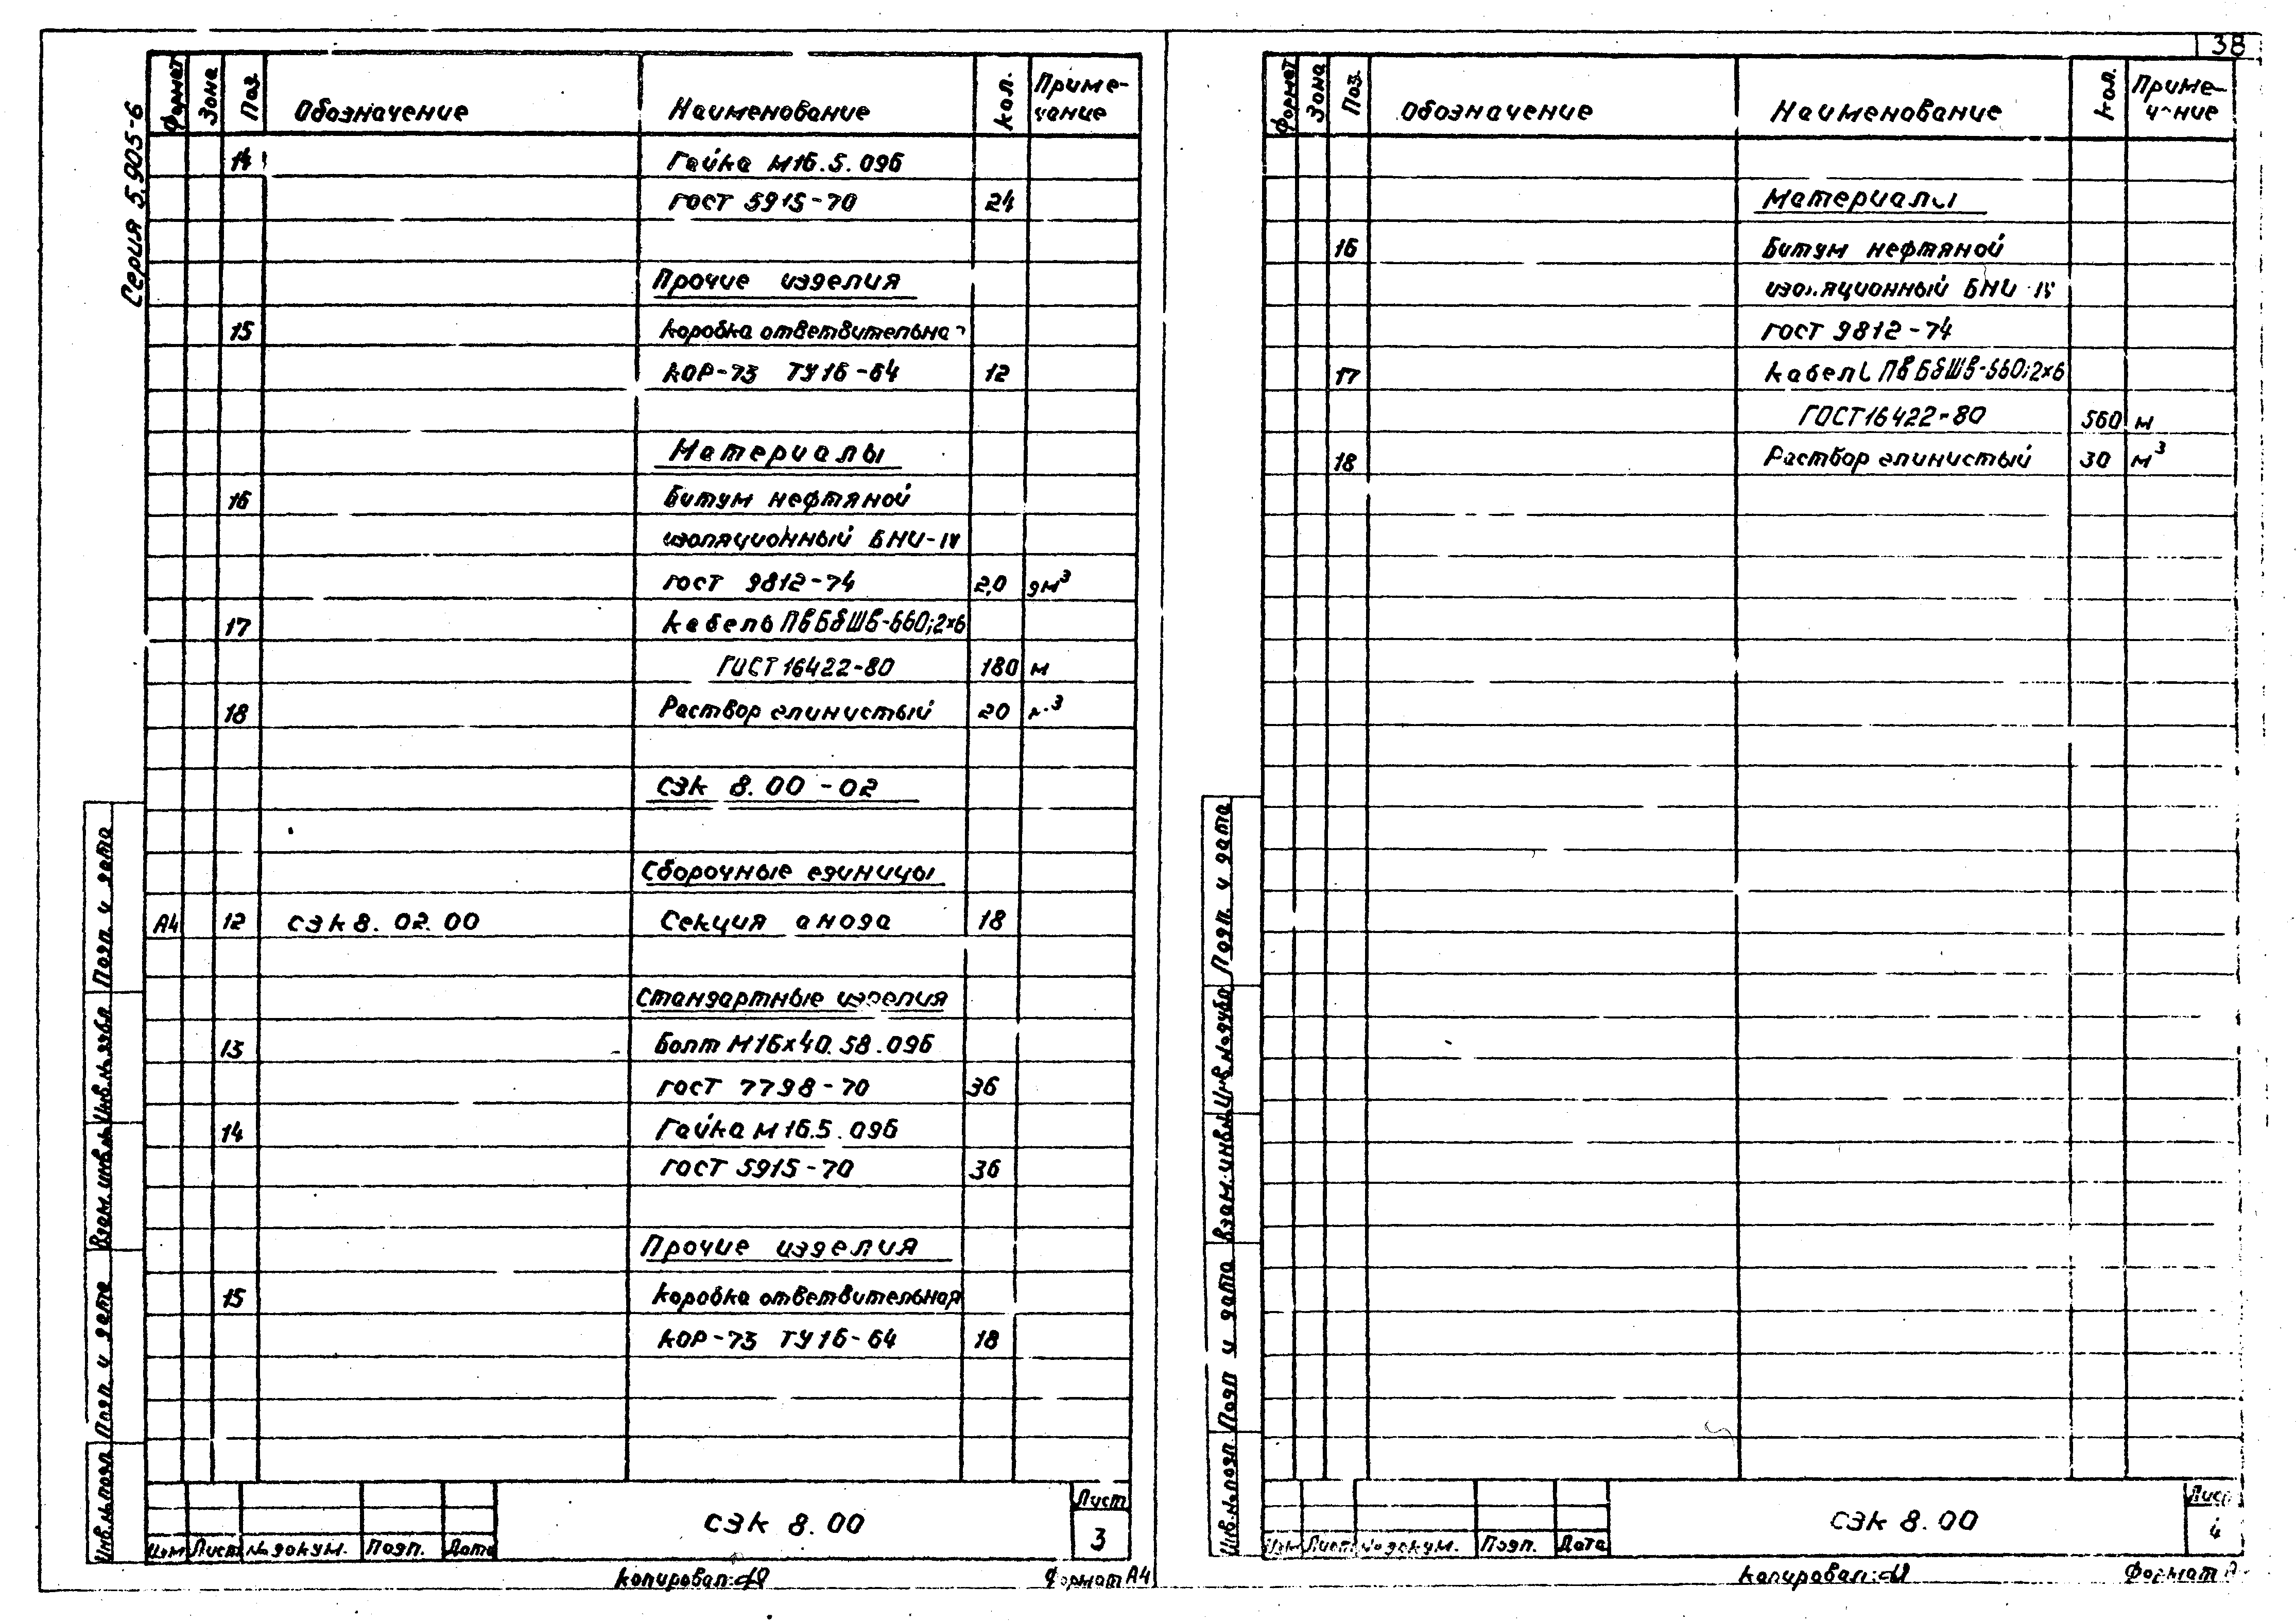 38
Серия 5.905-6
Формат Зона Поз. Обозначение Наименование Кол. Приме-
чание
14 Гайка М16.5.096
ГОСТ 5915-70 24
Прочие изделия
15 Коробка ответвительная
КОР-73 ТУ16-64 12
Материалы
16 Битум нефтяной
изоляционный БНИ-IV
ГОСТ 9812-74 2,0 дм³
17 Кабель ПвБбШв-660; 2×6
ГОСТ 16422-80 180 м
18 Раствор глинистый 20 м³
СЗК 8.00-02
Сборочные единицы
А4 12 СЗК 8.02.00 Секция анода 18
Стандартные изделия
13 Болт М16×40.58.096
ГОСТ 7798-70 36
14 Гайка М16.5.096
ГОСТ 5915-70 36
Прочие изделия
15 Коробка ответвительная
КОР-73 ТУ16-64 18
Подп. и дата
Инв. № дубл.
Взам. инв. №
Подп. и дата
Инв. № подл.
Изм Лист № докум. Подп. Дата
СЗК 8.00
Лист
3
Копировал:
Формат А4
Формат Зона Поз. Обозначение Наименование Кол. Приме-
чание
Материалы
16 Битум нефтяной
изоляционный БНИ-IV
ГОСТ 9812-74
17 Кабель ПвБбШв-660; 2×6
ГОСТ 16422-80 560 м
18 Раствор глинистый 30 м³
Подп. и дата
Инв. № дубл.
Взам. инв. №
Подп и дата
Инв. № подл.
Изм Лист № докум. Подп. Дата
СЗК 8.00
Лист
4
Копировал:
Формат